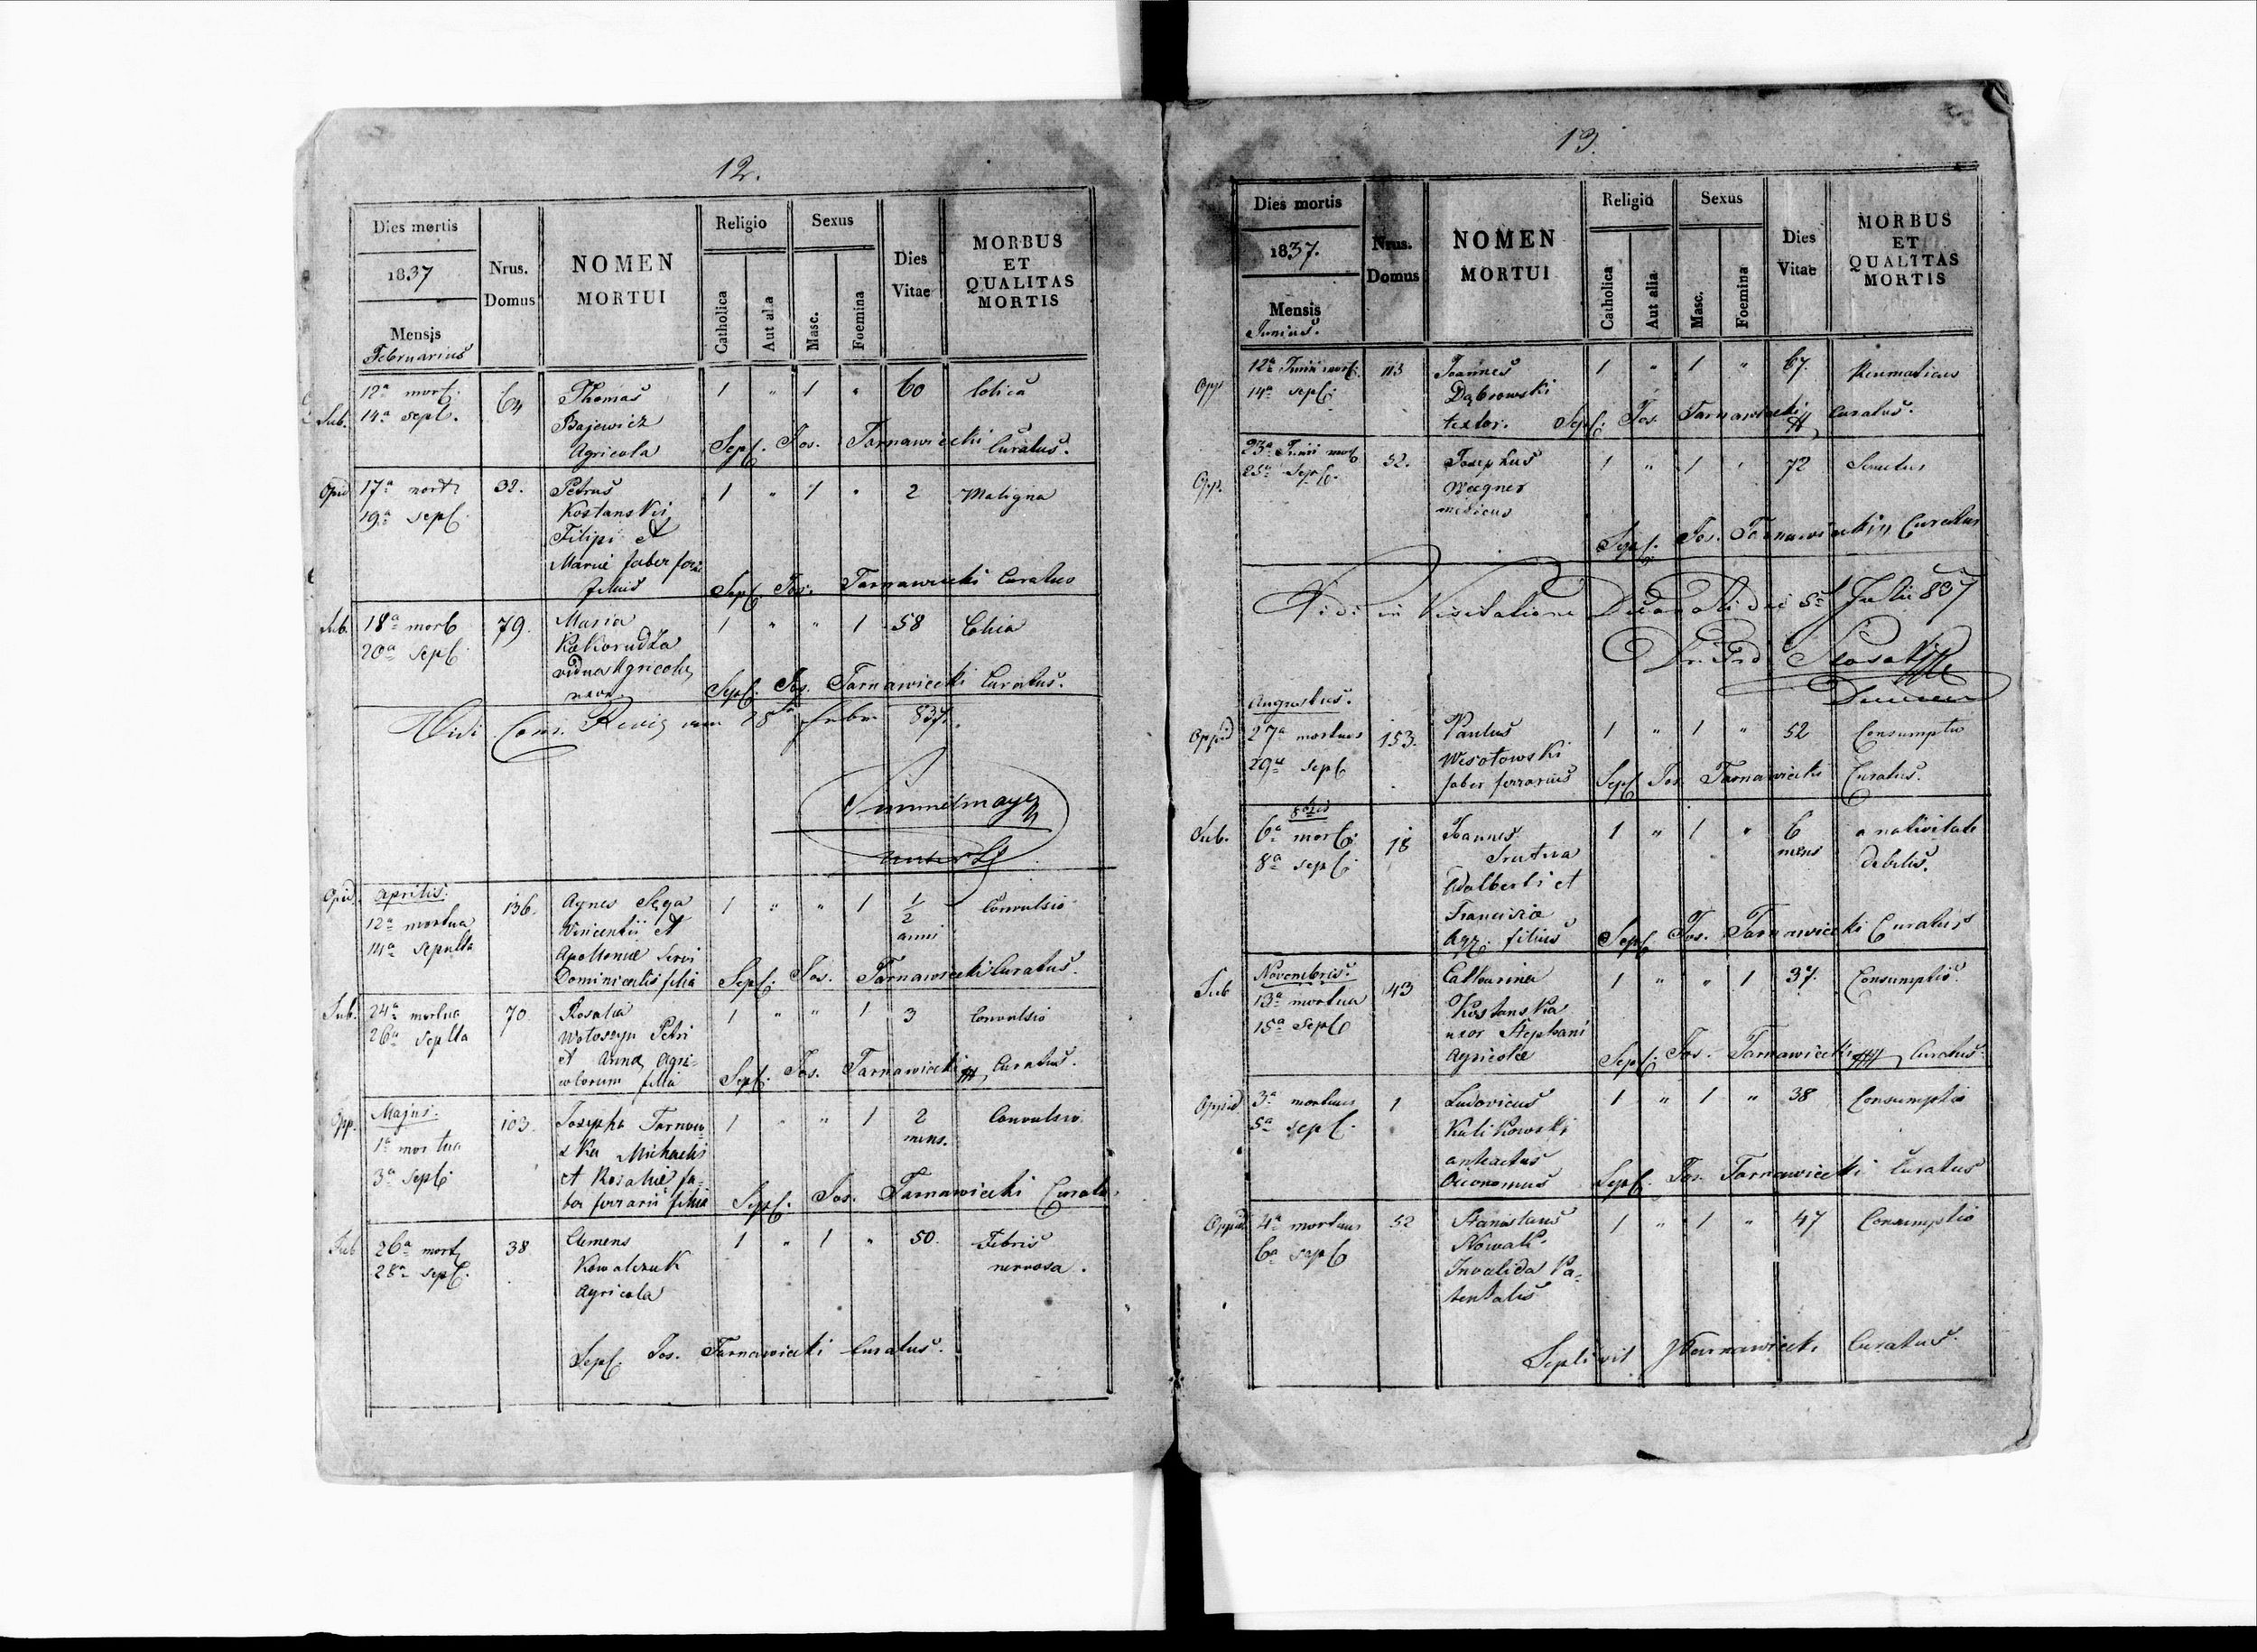 12.
Dies mortis
1837
Mensis
Februarius
Nrus. Domus
NOMEN MORTUI
Religio
Catholica
Aut alia
Sexus
Masc.
Foemina
Dies Vitae
MORBUS ET QUALITAS MORTIS
Sub. 12a mort. 64 Thomas 1 " 1 " 60 Colica
14a sepl. Bajewicz
Agricola Sepl. Jos. Tarnawiecki Curatus.
Opid 17a mort 32. Petrus 1 " 1 " 2 Maligna
19a sepl. Kostanski
Filipi et
Mariae faber
filius Sepl. Jos. Tarnawiecki Curatus
Sub. 18a mort 79. Maria 1 " " 1 58 Colica
20a sepl. Kakorudza
vidua Agricola
Sepl. Jos. Tarnawiecki Curatus.
Vidi 28a 837.
Opid. Aprilis. 136. Agnes Sega 1 " " 1 1/2 Convulsio
12a mortua Vincentii et anni
14a sepulta Apolloniae Servi
Dominicalis filia Sepl. Jos. Tarnawiecki Curatus.
Sub. 24a mortua 70. Rosalia 1 " " 1 3 Convulsio
26a seplta Wołoszyn Petri
et Anna Agri-
colorum filia Sepl. Jos. Tarnawiecki Curatus.
Opp. Majus. 103. Josepha Tarnow- 1 " " 1 2 Convulsio
1a mortua ska Michaelis mens.
3a sepl. et Rosaliae fa-
ber ferrarii filia Sepl. Jos. Tarnawiecki Curatus
Sub 26a mort 38. Clemens 1 " 1 " 50. Febris
28a sepl. Kowalczuk nervosa.
Agricola
Sepl. Jos. Tarnawiecki Curatus.
13.
Dies mortis
1837.
Mensis
Junius.
Nrus. Domus
NOMEN MORTUI
Religio
Catholica
Aut alia
Sexus
Masc.
Foemina
Dies Vitae
MORBUS ET QUALITAS MORTIS
Opp 12a Junii mort. 113 Joannes 1 " 1 " 67. Reumaticus
14a sepl. Dąbrowski
textor. Sepl. Jos. Tarnawiecki Curatus.
Opp. 23a Junii mort 52. Josephus 1 " 1 " 72
25a sepl. Wegner
medicus
Sepl. Jos. Tarnawiecki Curatus
Vidi in Visitatione Decanali die 5a Julii 837
Augustus.
Oppid 27a mortuus 153. Paulus 1 " 1 " 52 Consumptio
29a sepl Wesołowski
faber ferrarius Sepl. Jos Tarnawiecki Curatus.
8bris
Sub. 6a mort. 18 Joannes 1 " 1 " 6 a nativitate
8a sepl. mens debilis.
Adalberti et
filius Sepl. Jos. Tarnawiecki Curatus
Sub Novembris. 43 Catharina 1 " " 1 37. Consumptio
13a mortua Kostanska
15a sepl uxor Stephani
Agricolae Sepl. Jos. Tarnawiecki Curatus
Oppid 3a mortuus 1 Ludovicus 1 " 1 " 38 Consumptio
5a sepl. Kulikowski
anteactus
Oeconomus Sepl. Jos. Tarnawiecki Curatus
Oppid 4a mortuus 52 Stanislaus 1 " 1 " 47 Consumptio
6a sepl Nowak
Invalida Pa-
tentalis
Seplivit JTarnawiecki Curatus.